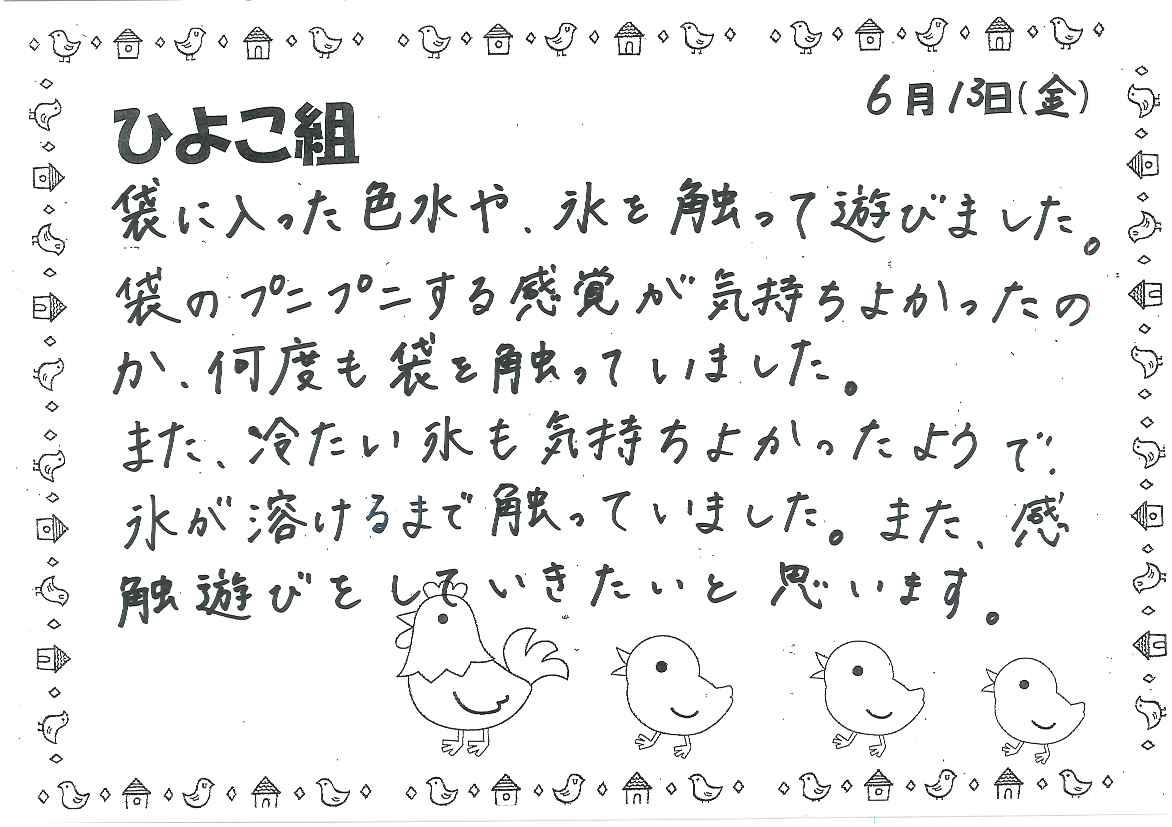 6月13日(金)
ひよこ組
袋に入った色水や、氷を触って遊びました。
袋のプニプニする感覚が気持ちよかったの
か、何度も袋を触っていました。
また、冷たい氷も気持ちよかったようで、
氷が溶けるまで触っていました。また、感
触遊びをしていきたいと思います。